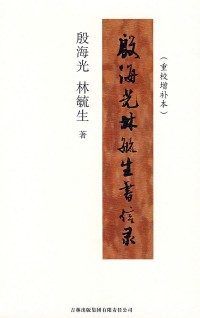 殷海光 林毓生 著
殷海光林毓生書信录
（重校增补本）
吉林出版集团有限责任公司